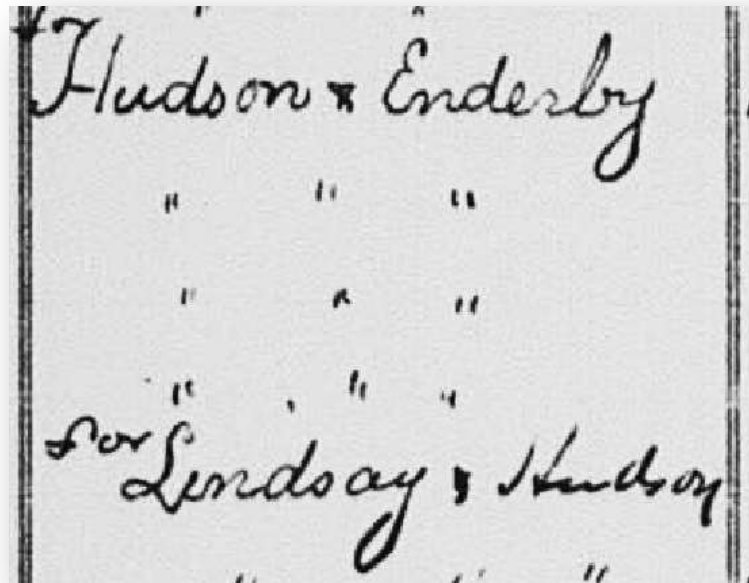 Hudson & Enderby
" " "
" " "
" " "
for Lindsay & Hudson
" " "